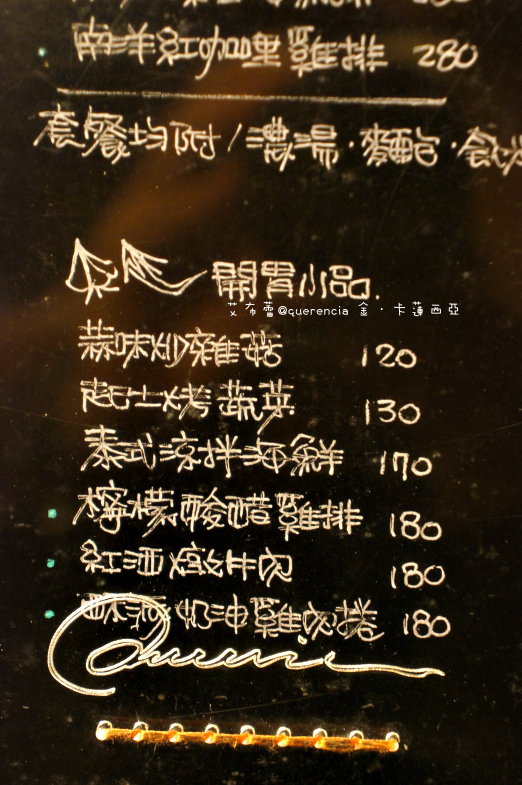 280
南洋紅咖哩雞排 280
套餐均附/濃湯·麵包·飲
開胃小品.
艾布蕾@querencia 金·卡蓮西亞
蒜味炒雜菇 120
起士烤蔬菜 130
泰式涼拌海鮮 170
檸檬酸醋雞排 180
紅酒燉牛肉 180
奶油雞肉捲 180